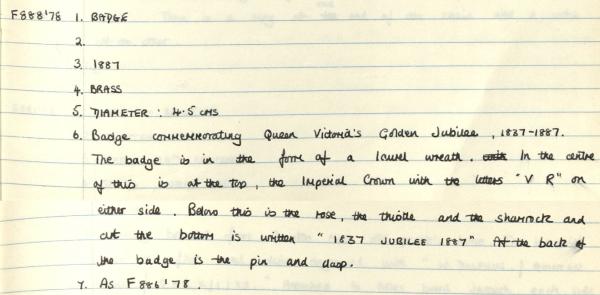 F888'78 1. BADGE
2.
3. 1887
4. BRASS
5. DIAMETER : 4.5 CMS
6. Badge commemorating Queen Victoria's Golden Jubilee, 1837-1887.
The badge is in the form of a laurel wreath. In the centre
of this is at the top, the Imperial Crown with the letters "V R" on
either side. Below this is the rose, the thistle and the shamrock and
at the bottom is written "1837 JUBILEE 1887" At the back of
the badge is the pin and clasp.
7. As F886'78.